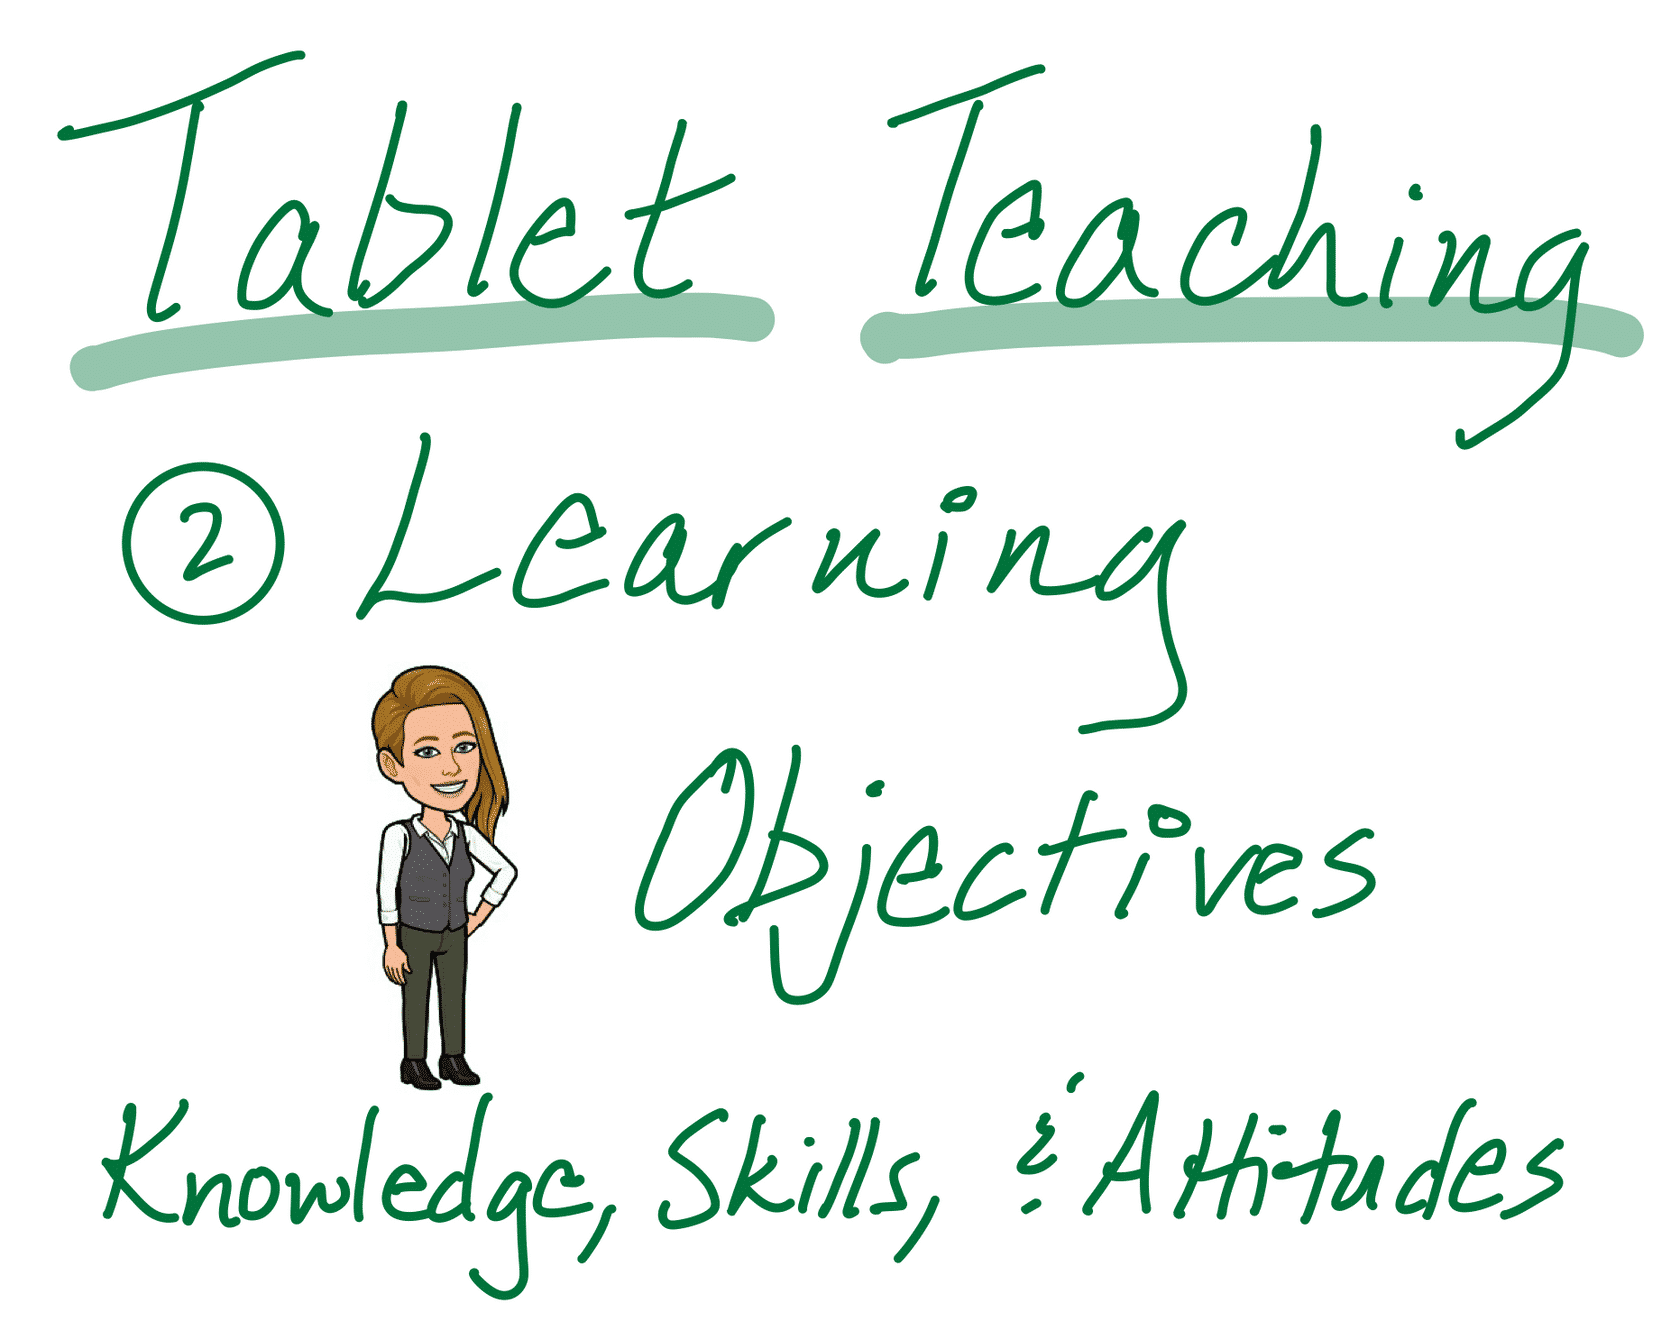 Tablet Teaching
② Learning
Objectives
Knowledge, Skills, & Attitudes